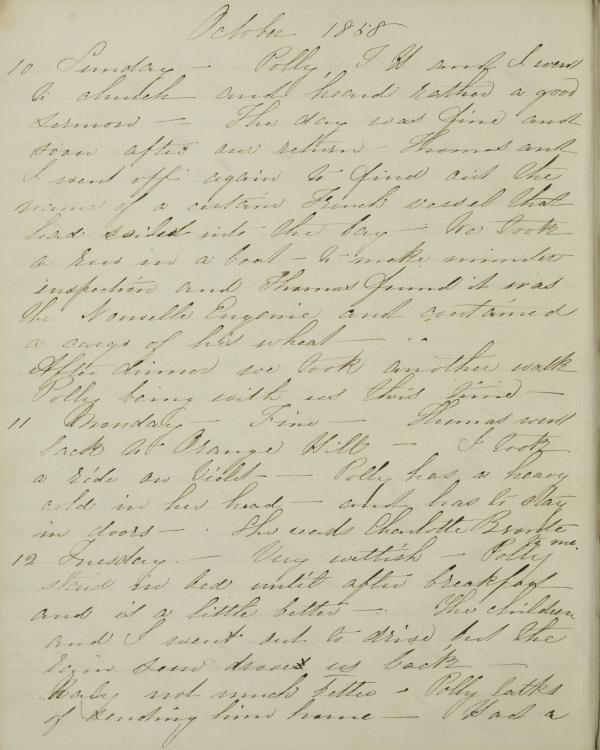 October 1858
10 Sunday — Polly, T H and I went
to church and heard rather a good
sermon — The day was fine and
soon after our return Thomas and
I went off again to find out the
name of a certain French vessel that
had sailed into the bay — We took
a run in a boat — to make minuter
inspection and Thomas found it was
the Nouvelle Eugenie and contained
a cargo of his wheat —
After dinner we took another walk
Polly being with us this time —
11 Monday — Fine — Thomas went
back to Orange Hill — I took
a ride on Violet — Polly has a heavy
cold in her head — and has to stay
in doors — She reads Charlotte Bronte
to me.
12 Tuesday — Very wettish — Polly
staid in bed until after breakfast
and is a little better — The children
and I went out to drive but the
rain soon drove us back —
Baby not much better - Polly talks
of sending him home — Had a